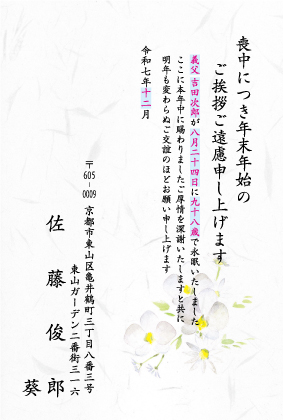 喪中につき年末年始の
ご挨拶ご遠慮申し上げます
義父 吉田次郎が八月二十四日に九十八歳で永眠いたしました
ここに本年中に賜わりましたご厚情を深謝いたしますと共に
明年も変わらぬご交誼のほどお願い申し上げます
令和七年十二月
〒605-0009
京都市東山区亀井鶴町三丁目八番三号
東山ガーデン二番街三一六
佐藤俊郎
葵